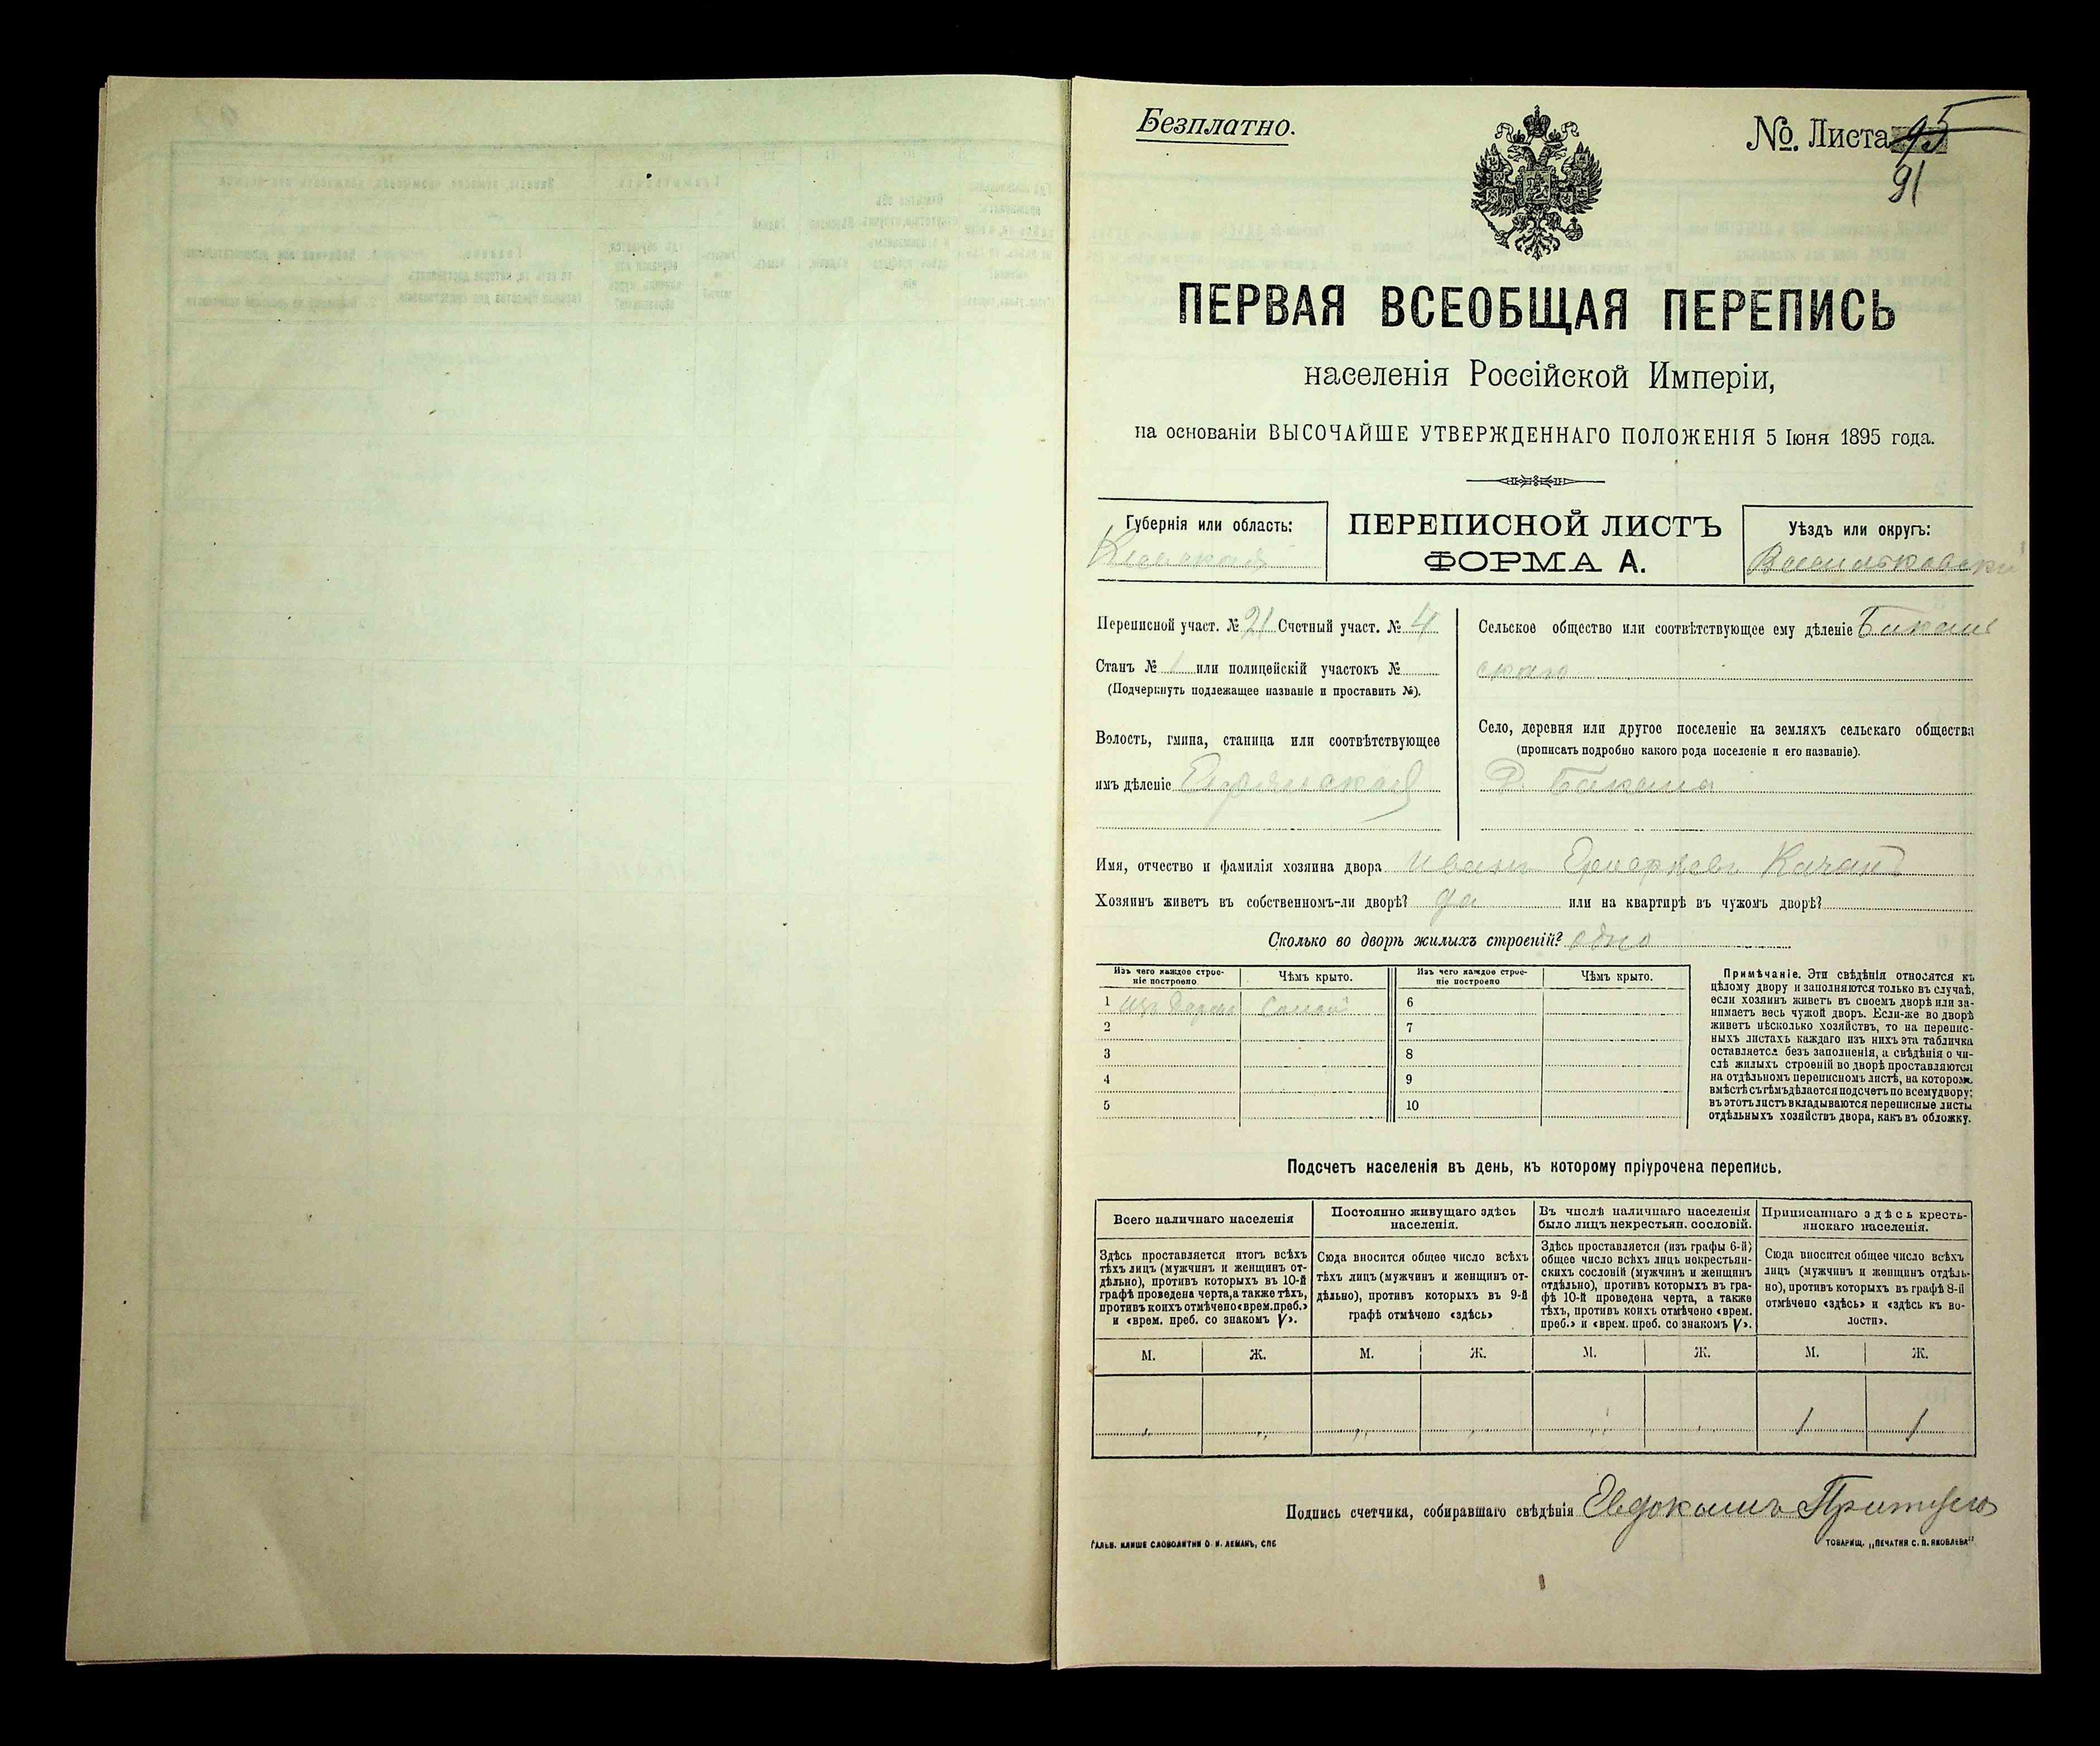 Безплатно.
№. Листа 95
91
ПЕРВАЯ ВСЕОБЩАЯ ПЕРЕПИСЬ
населенія Россійской Имперіи,
на основаніи ВЫСОЧАЙШЕ УТВЕРЖДЕННАГО ПОЛОЖЕНІЯ 5 Іюня 1895 года.
Губернія или область:
Кіевская
ПЕРЕПИСНОЙ ЛИСТЪ
ФОРМА А.
Уѣздъ или округъ:
Васильковскій
Переписной участ. № 21 Счетный участ. № 4
Станъ № 1 или полицейскій участокъ №
(Подчеркнуть подлежащее названіе и проставить №).
Волость, гмина, станица или соотвѣтствующее
имъ дѣленіе
Сельское общество или соотвѣтствующее ему дѣленіе
Село, деревня или другое поселеніе на земляхъ сельскаго общества
(прописать подробно какого рода поселеніе и его названіе).
Имя, отчество и фамилія хозяина двора Иванъ Качанъ
Хозяинъ живетъ въ собственномъ-ли дворѣ? да или на квартирѣ въ чужомъ дворѣ?
Сколько во дворѣ жилыхъ строеній? одно
Изъ чего каждое строе-
ніе построено
Чѣмъ крыто.
Изъ чего каждое строе-
ніе построено
Чѣмъ крыто.
1 изъ 6
2 7
3 8
4 9
5 10
Примѣчаніе. Эти свѣдѣнія относятся къ
цѣлому двору и заполняются только въ случаѣ,
если хозяинъ живетъ въ своемъ дворѣ или за-
нимаетъ весь чужой дворъ. Если-же во дворѣ
живетъ нѣсколько хозяйствъ, то на перепис-
ныхъ листахъ каждаго изъ нихъ эта табличка
оставляется безъ заполненія, а свѣдѣнія о чи-
слѣ жилыхъ строеній во дворѣ проставляются
на отдѣльномъ переписномъ листѣ, на которомъ
вмѣстѣ съ тѣмъ дѣлается подсчетъ по всему двору;
въ этотъ листъ вкладываются переписные листы
отдѣльныхъ хозяйствъ двора, какъ въ обложку.
Подсчетъ населенія въ день, къ которому пріурочена перепись.
Всего наличнаго населенія
Здѣсь проставляется итогъ всѣхъ
тѣхъ лицъ (мужчинъ и женщинъ от-
дѣльно), противъ которыхъ въ 10-й
графѣ проведена черта, а также тѣхъ,
противъ коихъ отмѣчено «врем. преб.»
и «врем. преб. со знакомъ V».
Постоянно живущаго здѣсь
населенія.
Сюда вносится общее число всѣхъ
тѣхъ лицъ (мужчинъ и женщинъ от-
дѣльно), противъ которыхъ въ 9-й
графѣ отмѣчено «здѣсь»
Въ числѣ наличнаго населенія
было лицъ некрестьян. сословій.
Здѣсь проставляется (изъ графы 6-й)
общее число всѣхъ лицъ некрестьян-
скихъ сословій (мужчинъ и женщинъ
отдѣльно), противъ которыхъ въ гра-
фѣ 10-й проведена черта, а также
тѣхъ, противъ коихъ отмѣчено «врем.
преб.» и «врем. преб. со знакомъ V».
Приписаннаго здѣсь кресть-
янскаго населенія.
Сюда вносится общее число всѣхъ
лицъ (мужчинъ и женщинъ отдѣль-
но), противъ которыхъ въ графѣ 8-й
отмѣчено «здѣсь» и «здѣсь къ во-
лости».
М. Ж. М. Ж. М. Ж. М. Ж.
1 1
Подпись счетчика, собиравшаго свѣдѣнія Евдокимъ
ГАЛЬВ. КЛИШЕ СЛОВОЛИТНИ О. И. ЛЕМАНЪ, СПБ
ТОВАРИЩ. „ПЕЧАТНЯ С. П. ЯКОВЛЕВА"